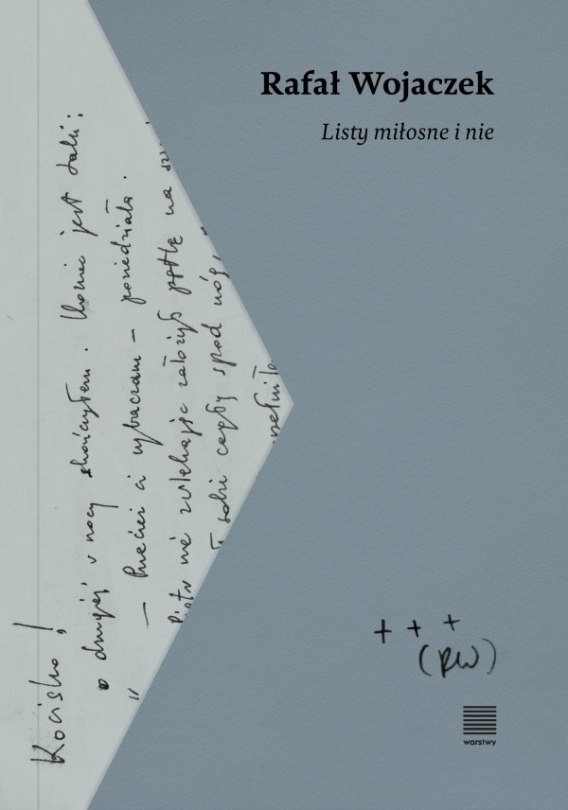 Rafał Wojaczek
Listy miłosne i nie
Kocisko!
o drugiej w nocy skończyłem. Koniec jest taki:
„— Przecież ci wybaczam — powiedziała.
Piotr nie zwlekając założył pętlę na szy
ł sobie cegły spod nóg,
+ + +
(RW)
warstwy